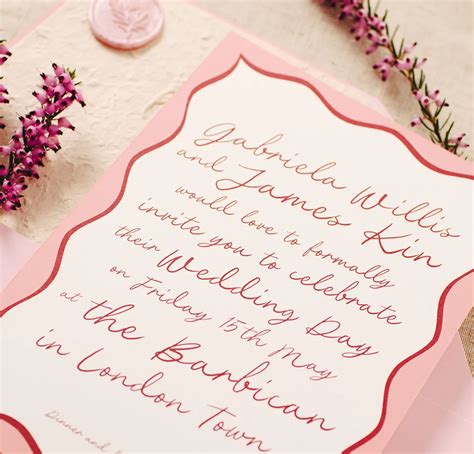 Gabriela Willis
and James Kin
would love to formally
invite you to celebrate
their Wedding Day
on Friday 15th May
at the Barbican
in London Town
Dinner and